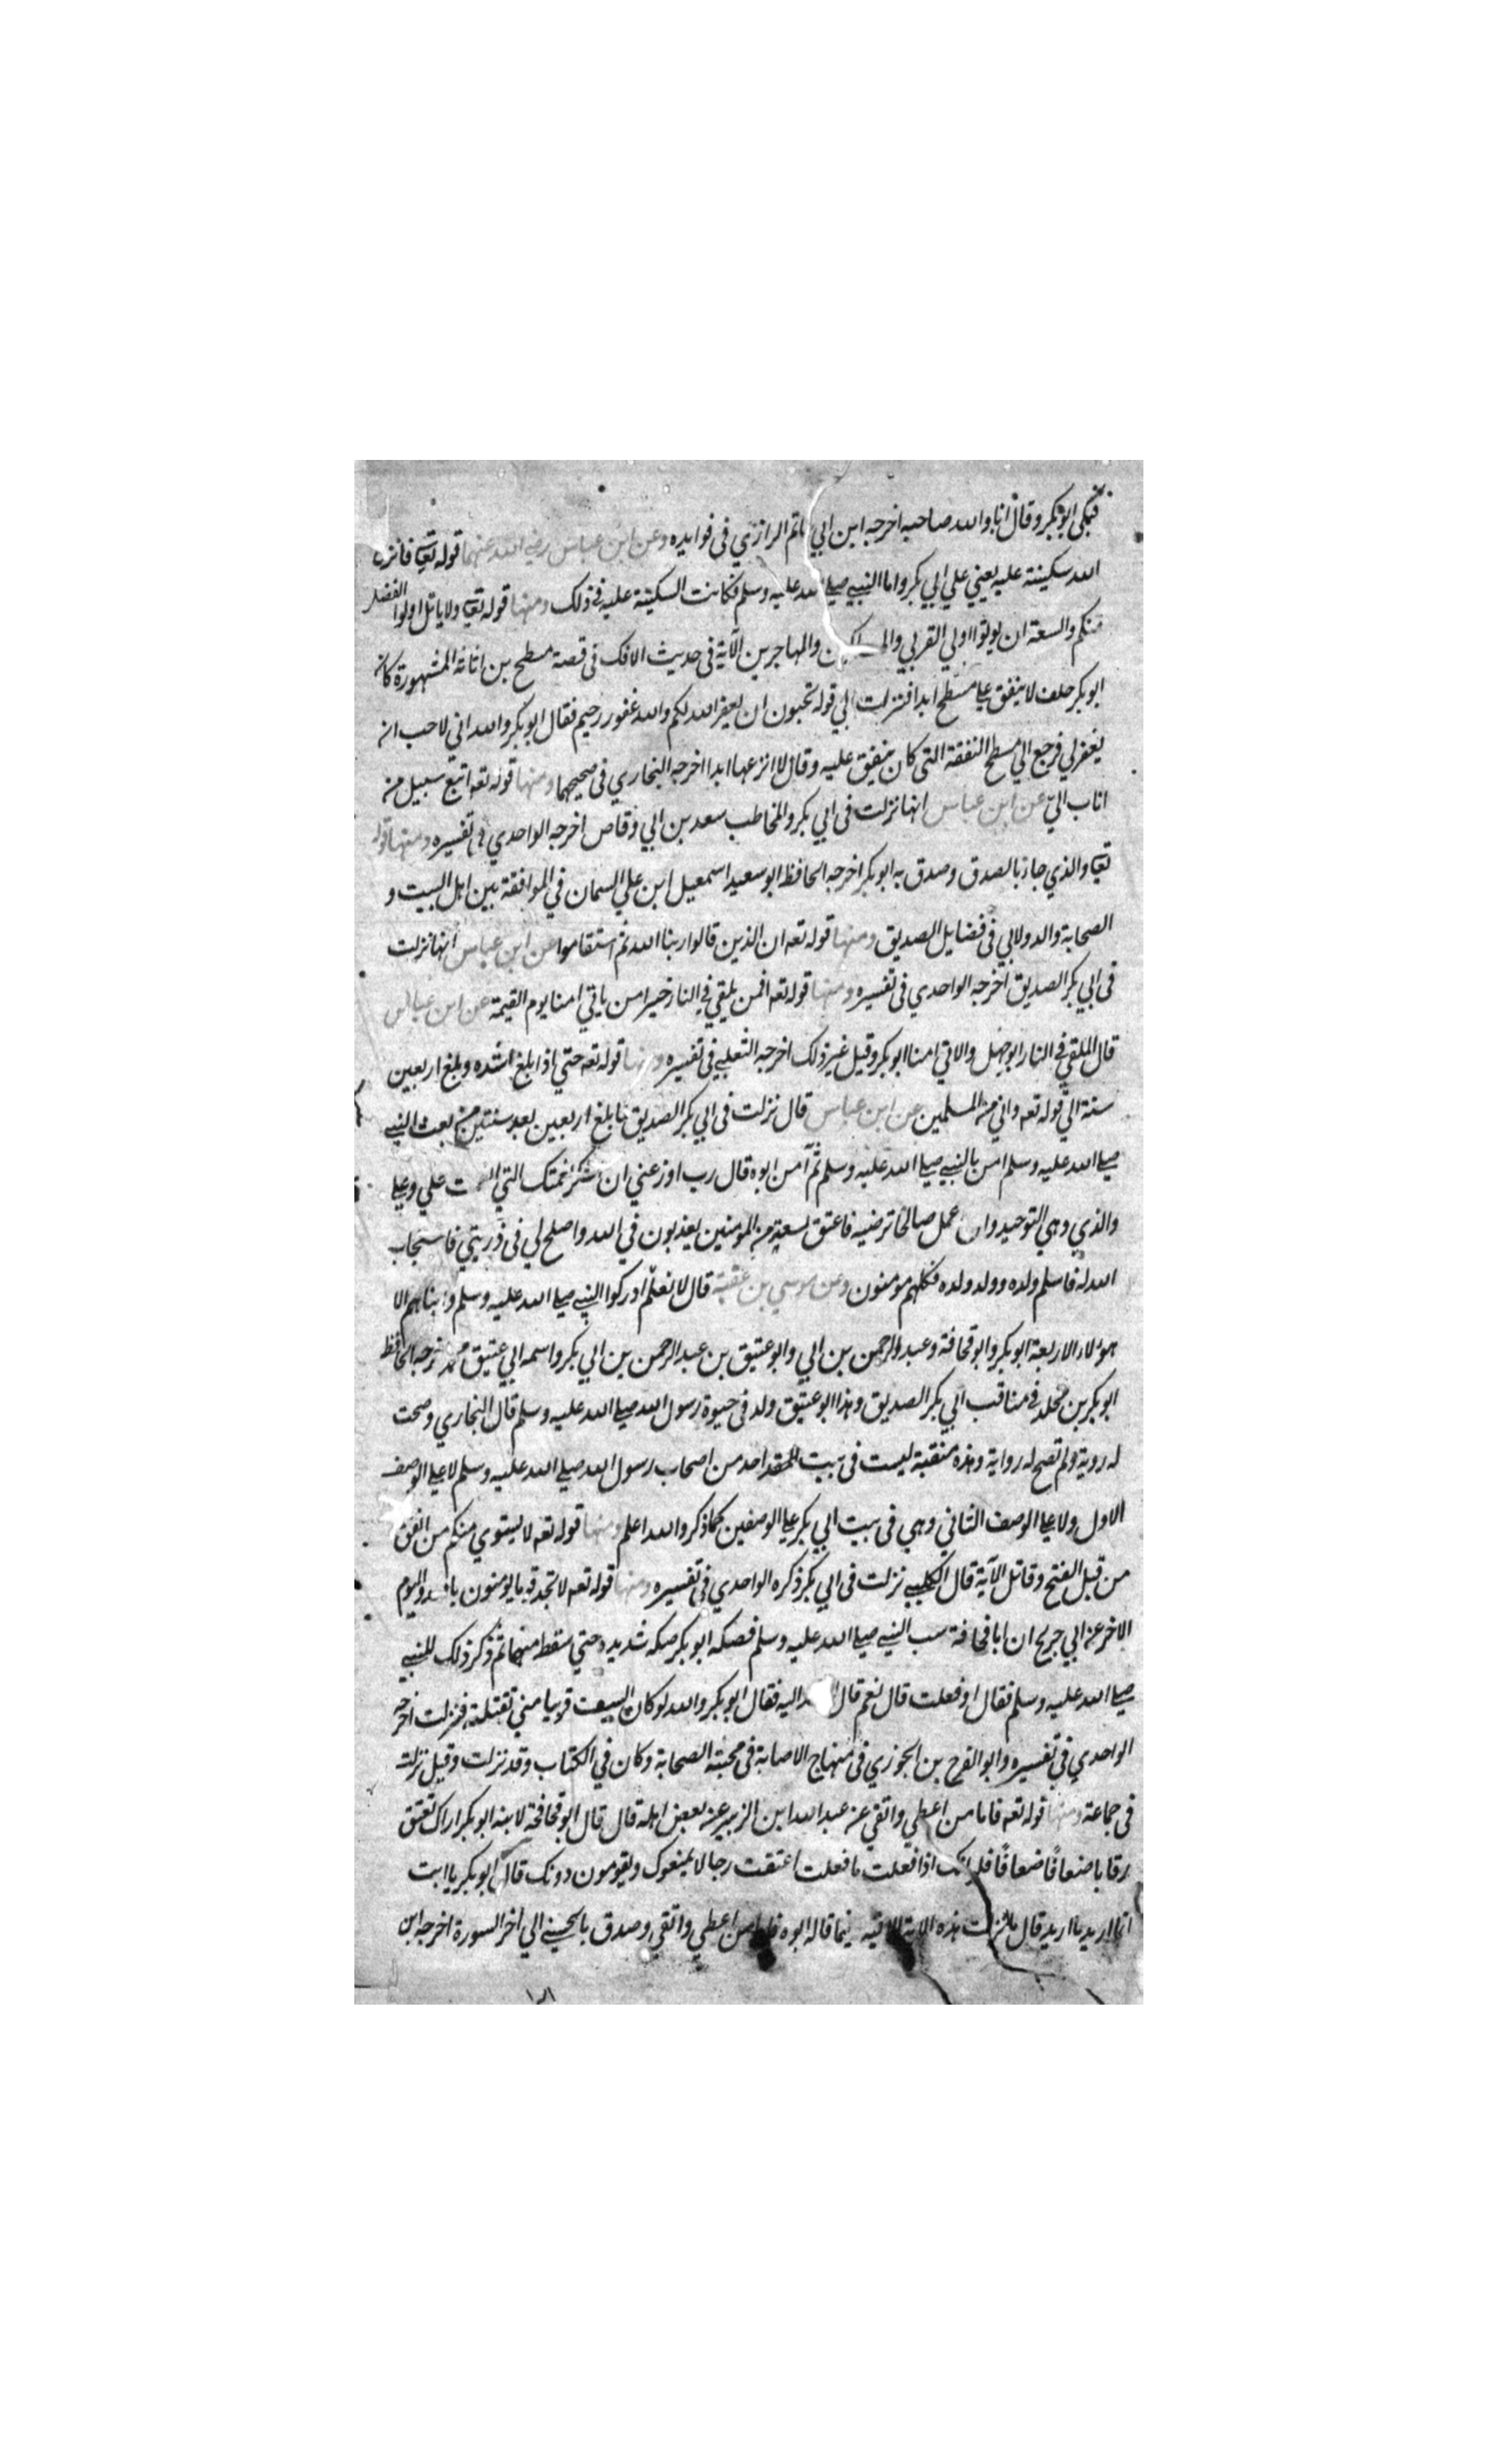 فبكي ابوبكر وقال انا والله صاحبه اخرجه ابن ابي حاتم الرازي في فوايده وعن ابن عباس رضي الله عنهما قوله تعا فانزل
الله سكينة عليه يعني علي ابي بكر واما النبي صلي الله عليه وسلم فكانت السكينة عليه في ذلك ومنها قوله تعا ولا ياتل اولوا الفضل
منكم والسعة ان يوتوا اولي القربي والمساكين والمهاجرين الآية في حديث الافك في قصة مسطح بن اثاثة المشهورة كان
ابوبكر حلف لا ينفق علي مسطح ابدا فنزلت الي قوله تحبون ان يغفر الله لكم والله غفور رحيم فقال ابوبكر والله اني لاحب ان
يغفر لي فرجع الي مسطح النفقة التي كان ينفق عليه وقال لا انزعها ابدا اخرجه البخاري في صحيحهما ومنها قوله تعه اتبع سبيل من
اناب الي عن ابن عباس انها نزلت في ابي بكر والمخاطب سعد بن ابي وقاص اخرجه الواحدي في تفسيره ومنها قوله
تعا والذي جاء بالصدق وصدق به ابوبكر اخرجه الحافظ ابو سعيد اسمعيل ابن علي السمان في الموافقة بين اهل البيت و
الصحابة والدولابي في فضايل الصديق ومنها قوله تعه ان الذين قالوا ربنا الله ثم استقاموا عن ابن عباس انها نزلت
في ابي بكر الصديق اخرجه الواحدي في تفسيره ومنها قوله تعه افمن يلقي في النار خير امن ياتي امنا يوم القيمة عن ابن عباس
قال الملقي في النار ابوجهل والاتي امنا ابوبكر وقيل غير ذلك اخرجه الثعلبي في تفسيره ومنها قوله تعه حتي اذا بلغ اشده وبلغ اربعين
سنة الي قوله تعه واني من المسلمين عن ابن عباس قال نزلت في ابي بكر الصديق لما بلغ اربعين بعد سنتين من بعث النبي
صلي الله عليه وسلم امن بالنبي صلي الله عليه وسلم ثم آمن ابوه قال رب اوزعني ان اشكر نعمتك التي انعمت علي وعلي
والذي وهي التوحيد وان عمل صالحا ترضيه فاعتق تسعة من المومنين يعذبون في الله واصلح لي في ذريتي فاستجاب
الله له فاسلم ولده وولد ولده فكلهم مومنون وعن موسي بن عقبة قال لا نعلم ادركوا النبي صلي الله عليه وسلم وابناهم الا
هولاء الاربعة ابوبكر وابو قحافة وعبد الرحمن بن ابي وابو عتيق بن عبد الرحمن بن ابي بكر واسمه ابي عتيق محمد خرجه الحافظ
ابوبكر بن مخلد في مناقب ابي بكر الصديق وهذا ابو عتيق ولد في حيوة رسول الله صلي الله عليه وسلم قال البخاري وصحت
له روية ولم تصح له رواية وهذه منقبة ليست في بيت احد من اصحاب رسول الله صلي الله عليه وسلم لا علي الوصف
الاول ولا علي الوصف الثاني وهي في بيت ابي بكر علي الوصفين كما ذكر والله اعلم ومنها قوله تعه لا يستوي منكم من انفق
من قبل الفتح وقاتل الآية قال الكلبي نزلت في ابي بكر ذكره الواحدي في تفسيره ومنها قوله تعه لا تجد قوما يومنون بالله واليوم
الاخر عن ابي جريح ان ابا قحافة سب النبي صلي الله عليه وسلم فصكه ابوبكر صكه شديدة حتي سقط منها ثم ذكر ذلك للنبي
صلي الله عليه وسلم فقال اوفعلت قال نعم قال اليه فقال ابوبكر والله لو كان السيف قريبا مني تقتلته فنزلت اخرجه
الواحدي في تفسيره وابو الفرج بن الجوزي في منهاج الاصابة في محبة الصحابة وكان في الكتاب وقد نزلت وقيل نزلت
في جماعة ومنها قوله تعه فاما من اعطي واتقي عن عبد الله ابن الزبير عن بعض اهله قال قال ابو قحافة لابنه ابوبكر اراك تعتق
رقابا ضعافًا ضعافًا فلو انك اذا فعلت ما فعلت اعتقت رجالا يمنعوك ويقومون دونك قال ابوبكر يا ابت
انما اريد ما اريد قال ما نزلت هذه الاية الا فيه فيما قاله ابوه فاما من اعطي واتقي وصدق بالحسني الي اخر السورة اخرجه ابن